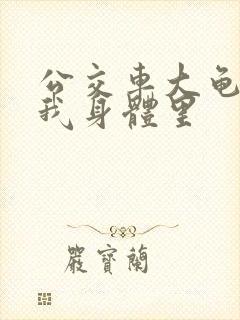 公交车大龟
我身體里
嚴寶蘭